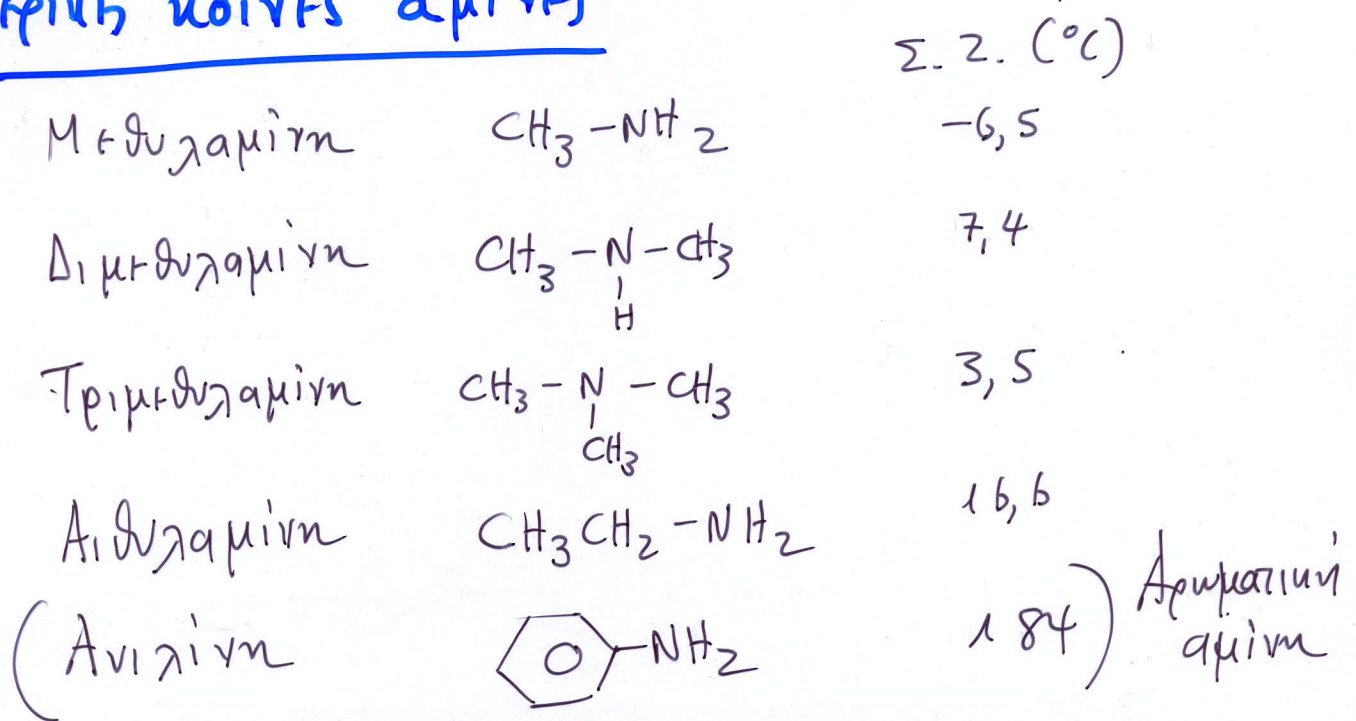 κοινές αμίνες
Σ. Ζ. (°C)
Μεθυλαμίνη CH3-NH2 -6,5
Διμεθυλαμίνη CH3-N-CH3 7,4
H
Τριμεθυλαμίνη CH3-N-CH3 3,5
CH3
Αιθυλαμίνη CH3CH2-NH2 16,6
(Ανιλίνη -NH2 184) Αρωματική
αμίνη